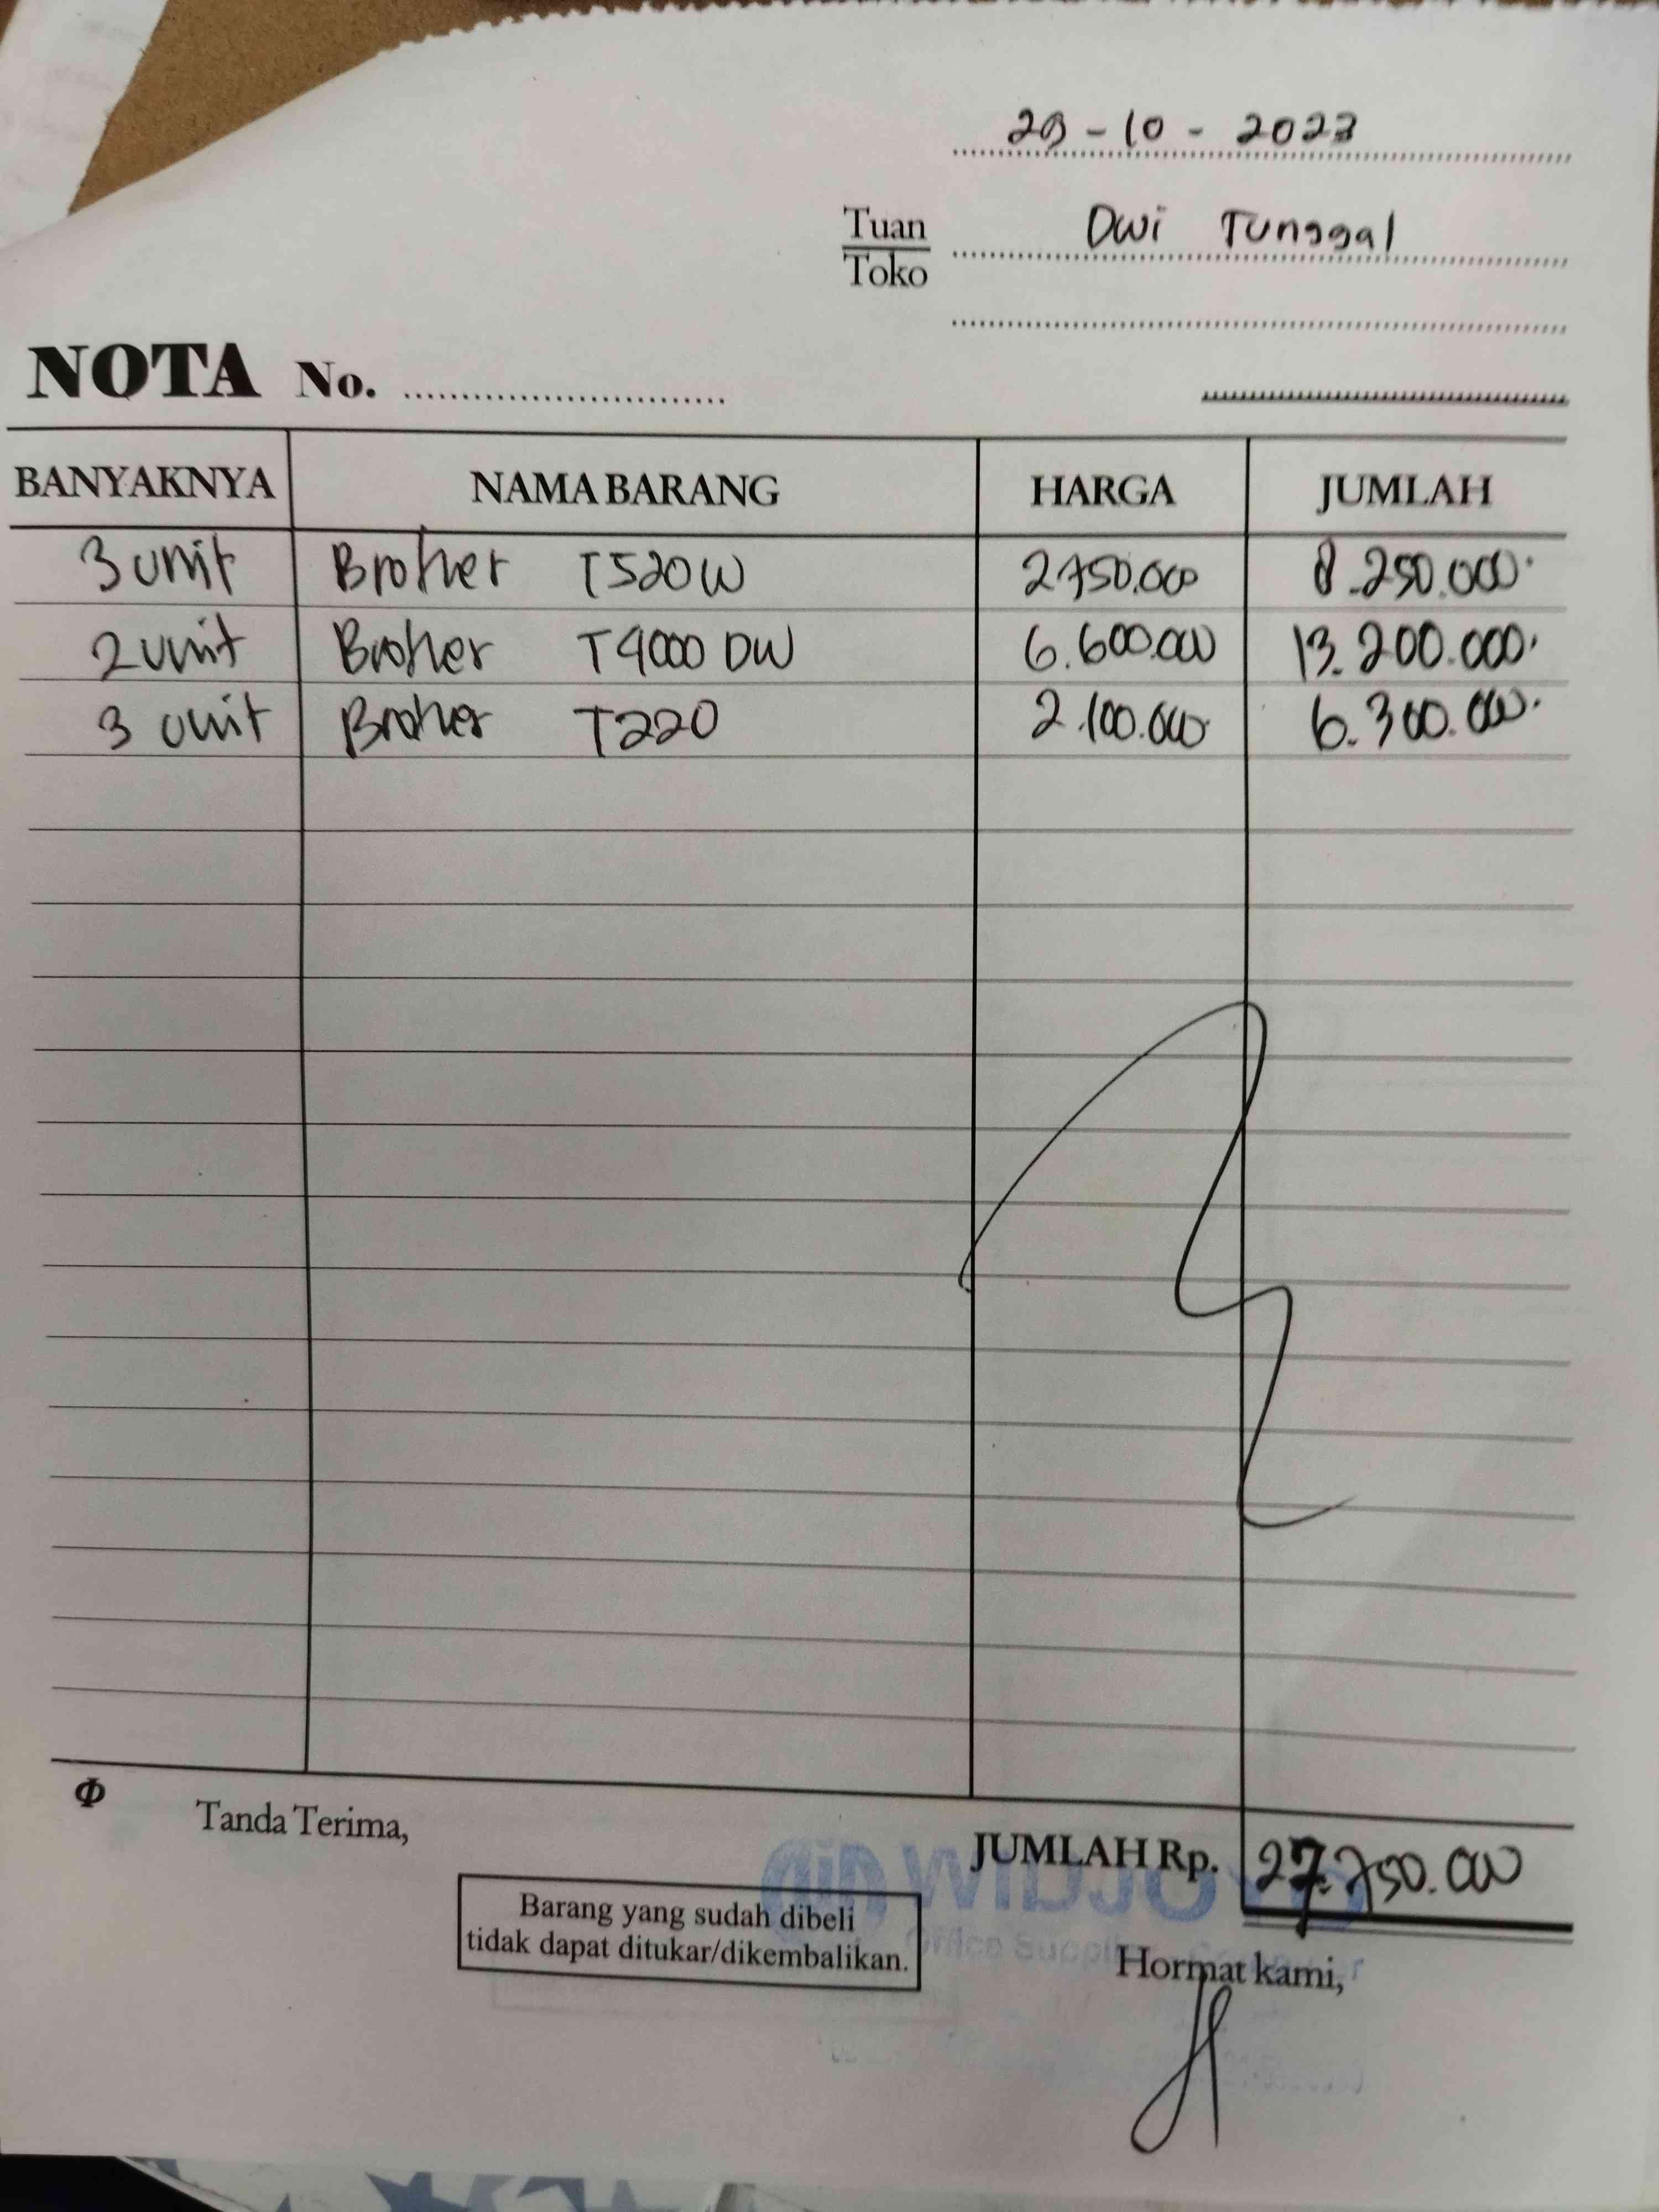 29-10-2023
Tuan
Toko
Dwi Tunggal
NOTA No.
BANYAKNYA NAMA BARANG HARGA JUMLAH
3 unit Brother T520W 2.750.000 8.250.000
2 unit Brother T4000 DW 6.600.000 13.200.000
3 unit Brother T220 2.100.000 6.300.000
Φ Tanda Terima,
JUMLAH Rp. 27.750.000
Barang yang sudah dibeli
tidak dapat ditukar/dikembalikan.
Hormat kami,